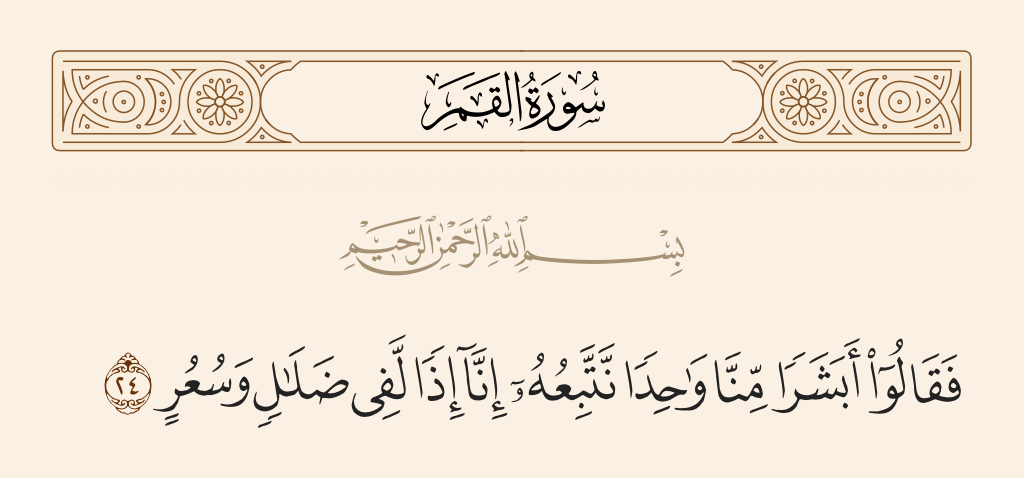 سُورَةُ القَمَرِ
بِسْمِ ٱللَّهِ ٱلرَّحْمَٰنِ ٱلرَّحِيمِ
فَقَالُوٓا۟ أَبَشَرًا مِّنَّا وَٰحِدًا نَّتَّبِعُهُۥٓ إِنَّآ إِذًا لَّفِى ضَلَٰلٍ وَسُعُرٍ ٢٤